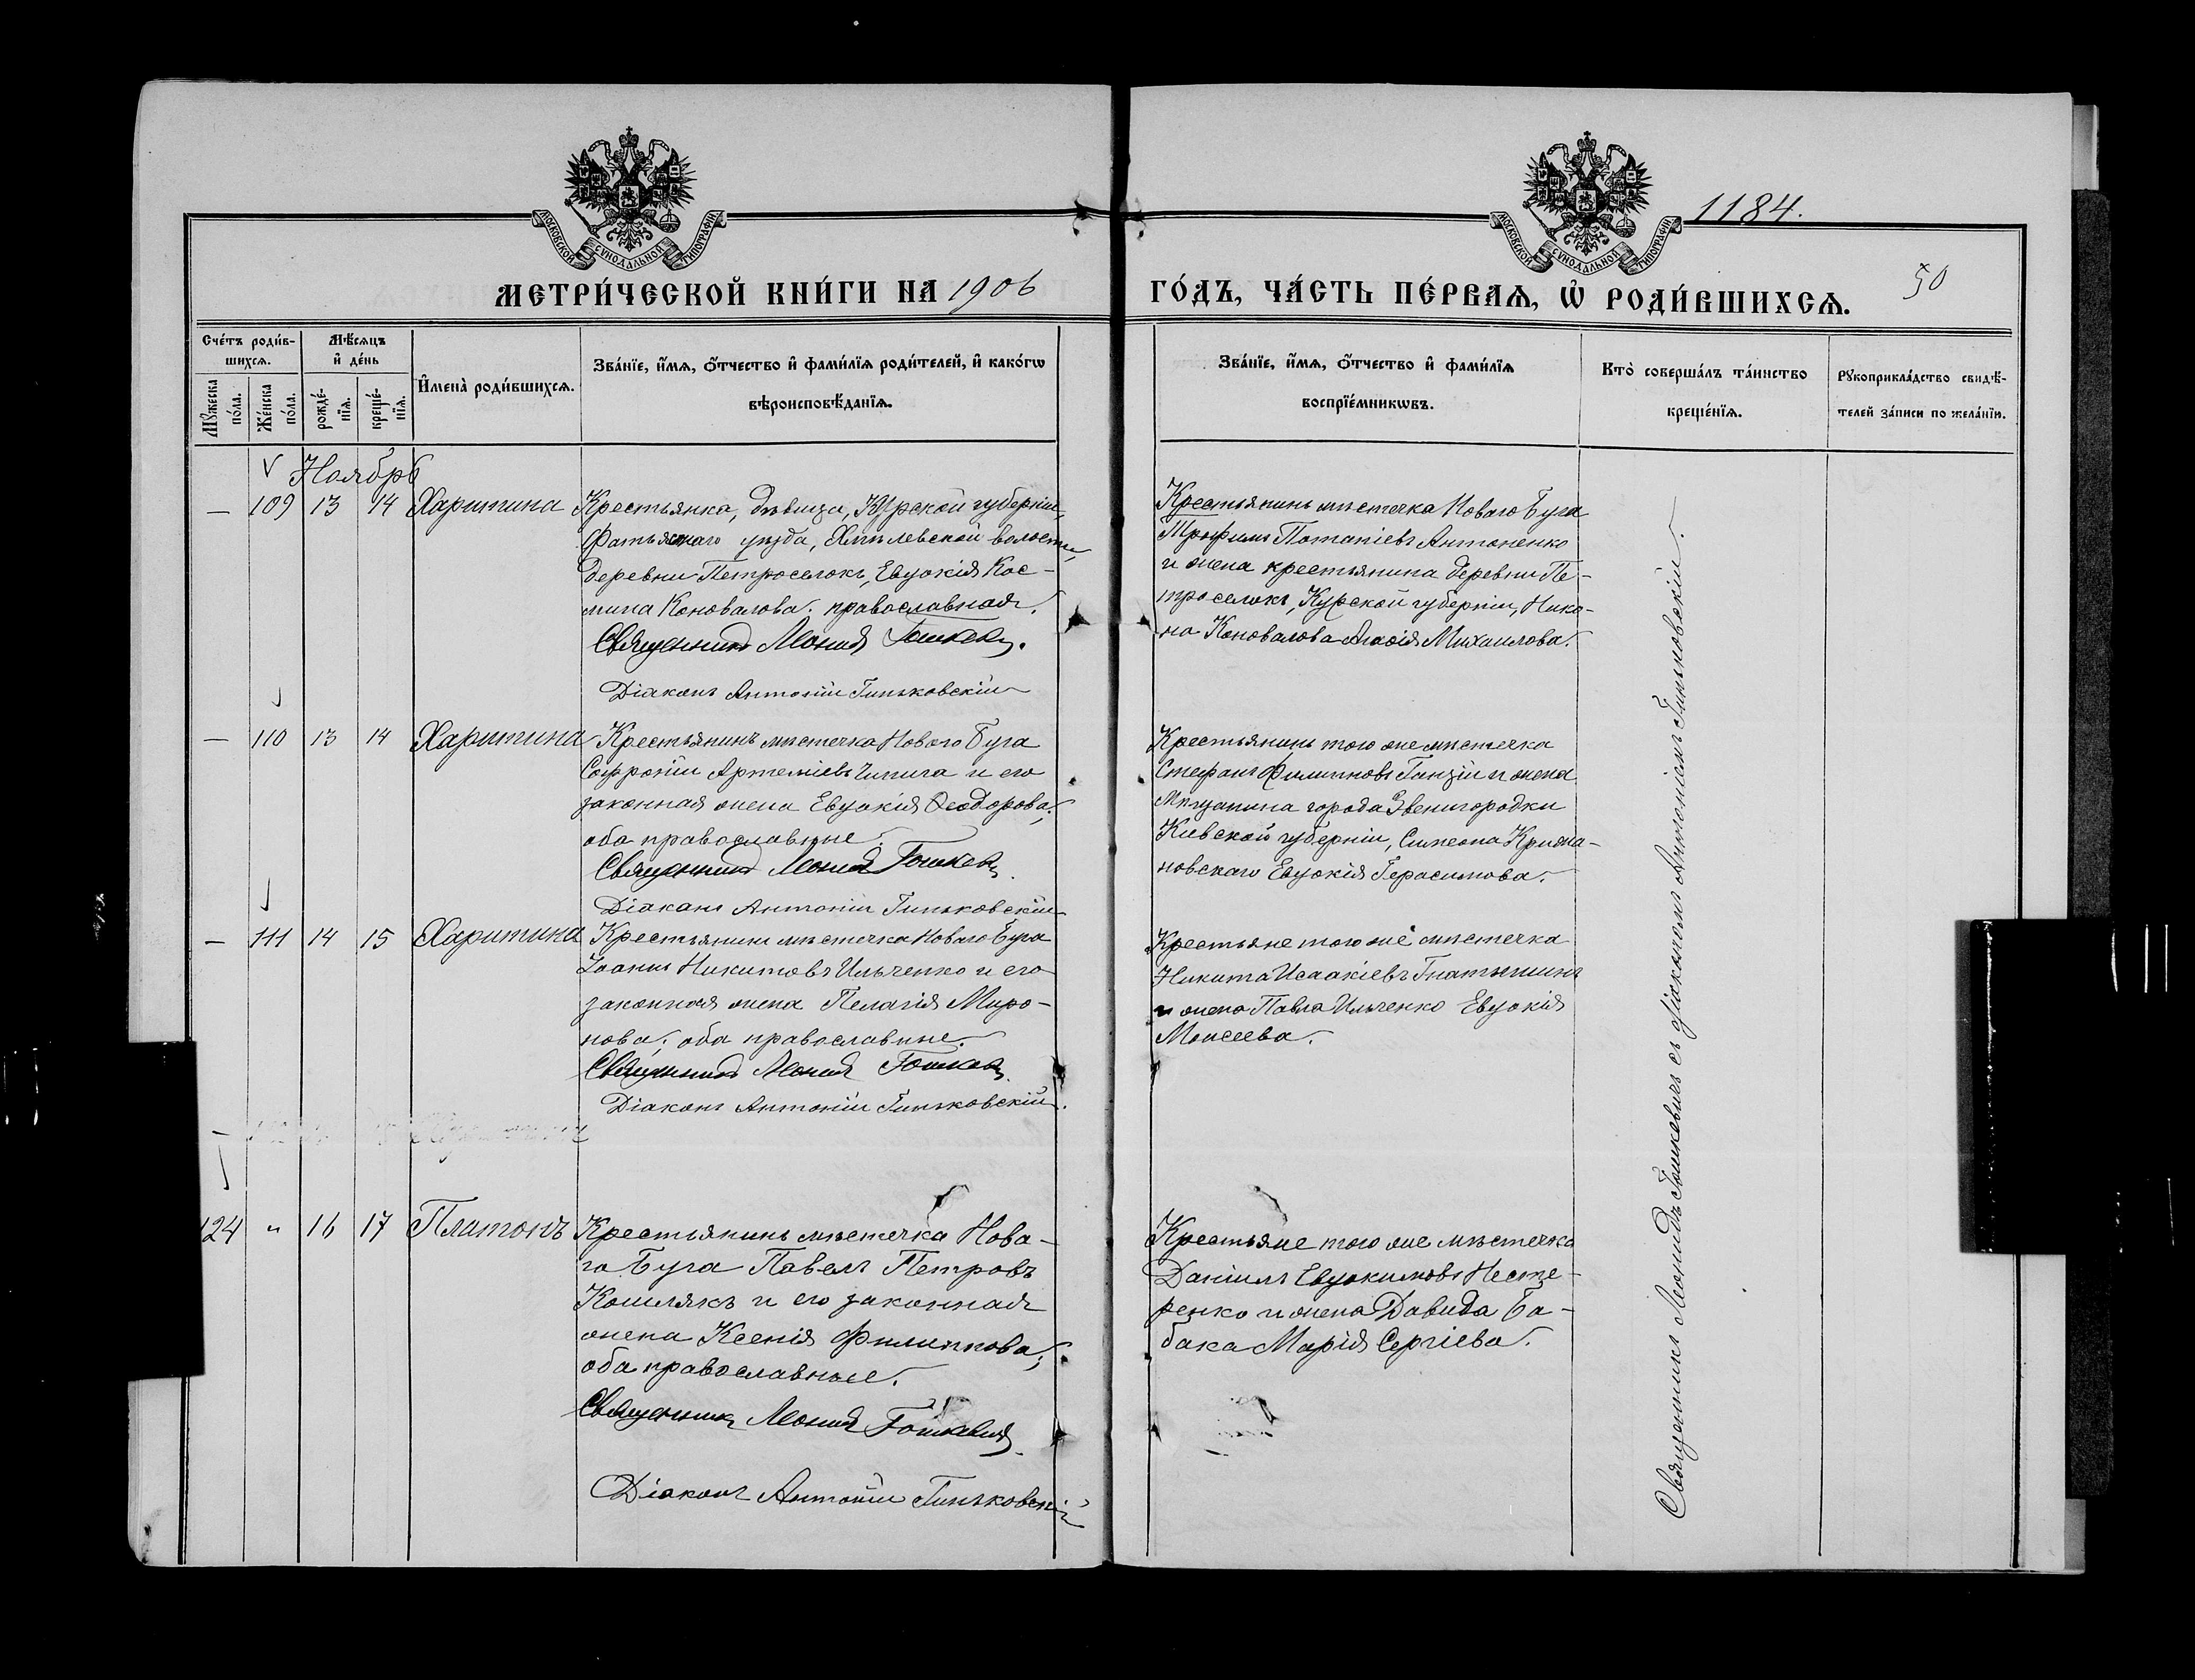 1184.
50
МОСКОВСКОЙ СѴНОДАЛЬНОЙ ТИПОГРАФІИ
МОСКОВСКОЙ СѴНОДАЛЬНОЙ ТИПОГРАФІИ
МЕТРИ́ЧЕСКОЙ КНИ́ГИ НА 1906 ГО́ДЪ, ЧА́СТЬ ПЕ́РВАѦ, Ѡ҆ РОДИ́ВШИХСѦ.
Сче́тъ роди́в-
шихсѧ.
Мꙋ́жеска
по́ла.
Же́нска
по́ла.
Мѣ́сѧцъ
и҆ де́нь
рожде́-
нїѧ.
креще́-
нїѧ.
И҆мена̀ роди́вшихсѧ.
Зва́нїе, и҆́мѧ, ѻ҆́тчество и҆ фами́лїѧ роди́телей, и҆ како́гѡ
вѣроисповѣ́данїѧ.
Зва́нїе, и҆́мѧ, ѻ҆́тчество и҆ фами́лїѧ
воспрїе́мникѡвъ.
Кто̀ соверша́лъ та́инство
креще́нїѧ.
Рꙋкоприкла́дство свидѣ́-
телей за́писи по жела́нїю.
Ноябрь
— 109 13 14 Харитина
Крестьянка, дѣвица, Курской губерніи,
Фатьяскаго уѣзда, Хмѣлевской волости,
деревни Петроселокъ, Евдокія Кос-
мина Коновалова. православная.
Священникъ Леонид Гошкев.
Діаконъ Антоній Гиньковскій
Крестьянинъ мѣстечка Новаго Буга
Трофимъ Потапіевъ Антоненко
и жена крестьянина деревни Пе-
троселокъ, Курской губерніи, Нико-
на Коновалова Агафія Михаилова.
— 110 13 14 Харитина
Крестьянинъ мѣстечка Новаго Буга
Софроній Артеміевъ Чипига и его
законная жена Евдокія Ѳеодорова;
оба православные.
Священникъ Леонид Гошкев.
Діаконъ Антоній Гиньковскій
Крестьянинъ того же мѣстечка
Стефанъ Филипповъ Ганзій и жена
мѣщанина города Звенигородки
Кіевской губерніи, Симеона Крижа-
новскаго Евдокія Герасимова.
— 111 14 15 Харитина
Крестьянинъ мѣстечка Новаго Буга
Іоаннъ Никитовъ Ильченко и его
законная жена Пелагія Миро-
нова; оба православные.
Священникъ Леонид Гошкев.
Діаконъ Антоній Гиньковскій.
Крестьяне того же мѣстечка
Никита Исаакіевъ Гнатышинъ
и жена Павла Ильченко Евдокія
Моисеева.
124 " 16 17 Платонъ
Крестьянинъ мѣстечка Нова-
го Буга Павелъ Петровъ
Кошлякъ и его законная
жена Ксенія Филиппова;
оба православные.
Священникъ Леонид Гошкевич.
Діаконъ Антоній Гиньковскій
Крестьяне того же мѣстечка
Даніилъ Евдокимовъ Несте-
ренко и жена Давида Ба-
бака Марія Сергіева.
Священникъ Леонидъ Гошкевичъ съ діакономъ Антоніемъ Гиньковскій.